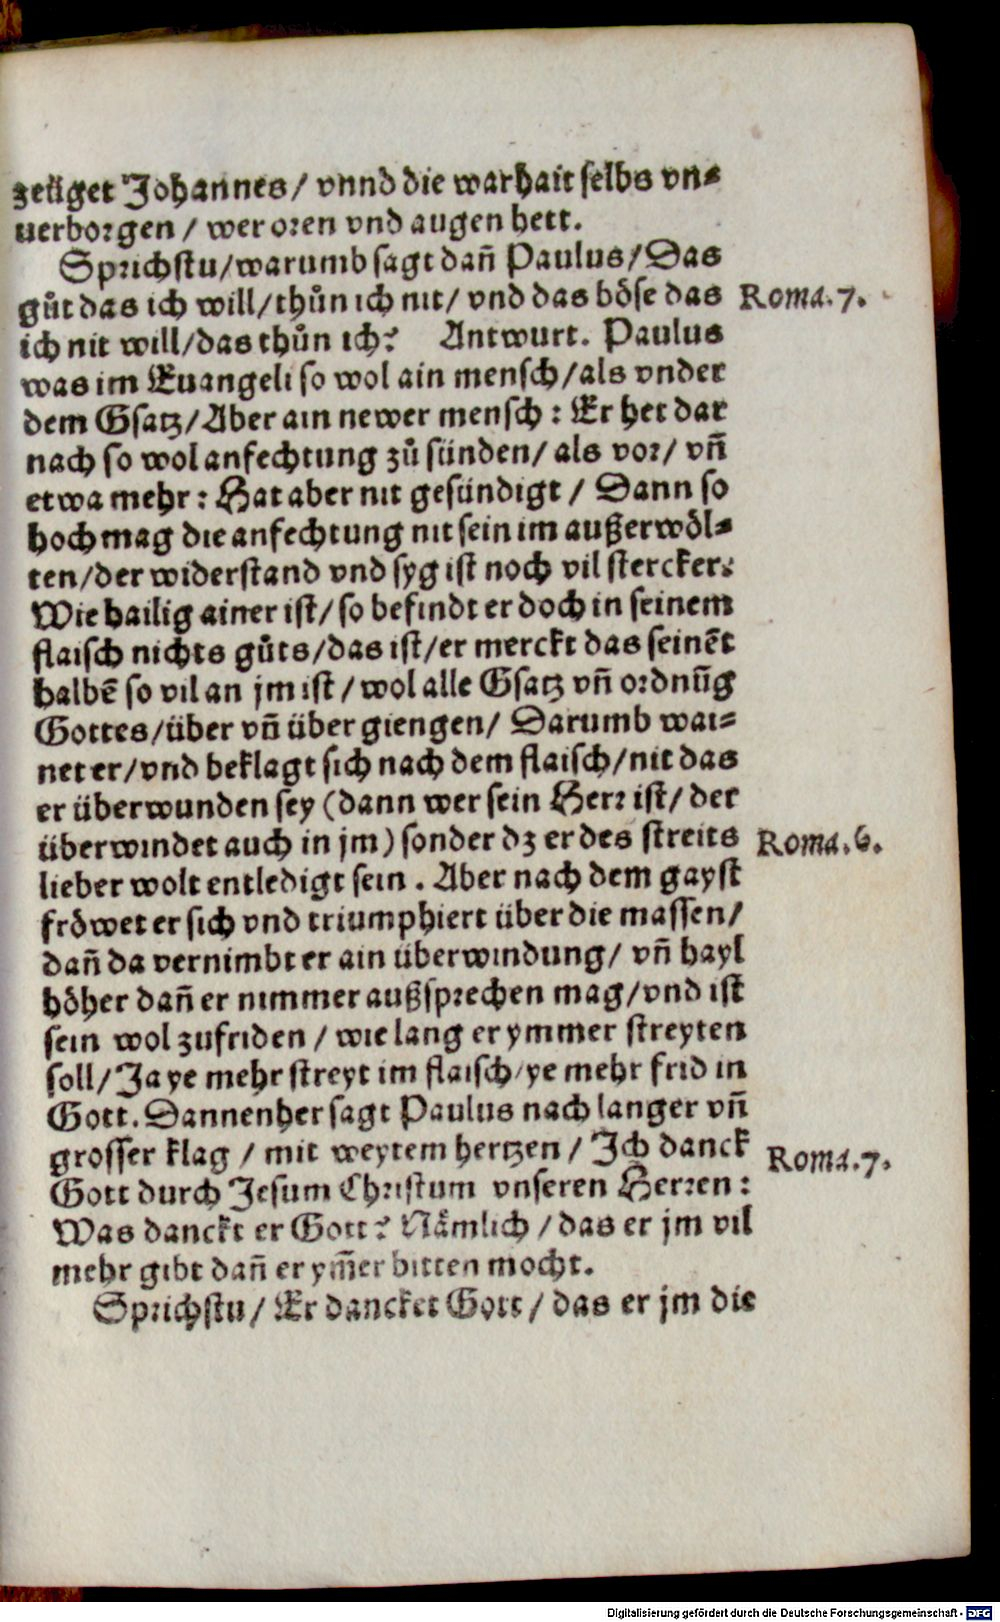 zeüget Johannes/ vnnd die warhait selbs vn-
uerborgen / wer oren vnd augen hett.
Sprichstu/warumb sagt dañ Paulus/Das
gůt das ich will/thůn ich nit/ vnd das böse das
Roma.7.
ich nit will/das thůn ich? Antwurt. Paulus
was im Euangeli so wol ain mensch/als vnder
dem Gsatz/Aber ain newer mensch : Er het dar
nach so wol anfechtung zů sünden/ als vor/ vñ
etwa mehr : Hat aber nit gesündigt / Dann so
hoch mag die anfechtung nit sein im außerwöl-
ten/der widerstand vnd syg ist noch vil stercker:
Wie hailig ainer ist/ so befindt er doch in seinem
flaisch nichts gůts/das ist/er merckt das seinēt
halbē so vil an jm ist / wol alle Gsatz vñ ordnūg
Gottes/über vñ über giengen/ Darumb wai-
net er/vnd beklagt sich nach dem flaisch/nit das
er überwunden sey (dann wer sein Herr ist/ der
überwindet auch in jm) sonder dz er des streits
Roma.6.
lieber wolt entledigt sein . Aber nach dem gayst
fröwet er sich vnd triumphiert über die massen/
dañ da vernimbt er ain überwindung/ vñ hayl
höher dañ er nimmer außsprechen mag/vnd ist
sein wol zufriden / wie lang er ymmer streyten
soll/ Ja ye mehr streyt im flaisch/ye mehr frid in
Gott. Dannenher sagt Paulus nach langer vñ
grosser klag / mit weytem hertzen / Ich danck
Roma.7.
Gott durch Jesum Christum vnseren Herren :
Was danckt er Gott? Nämlich / das er jm vil
mehr gibt dañ er ym̃er bitten mocht.
Sprichstu/ Er dancket Gott / das er jm die
Digitalisierung gefördert durch die Deutsche Forschungsgemeinschaft - DFG